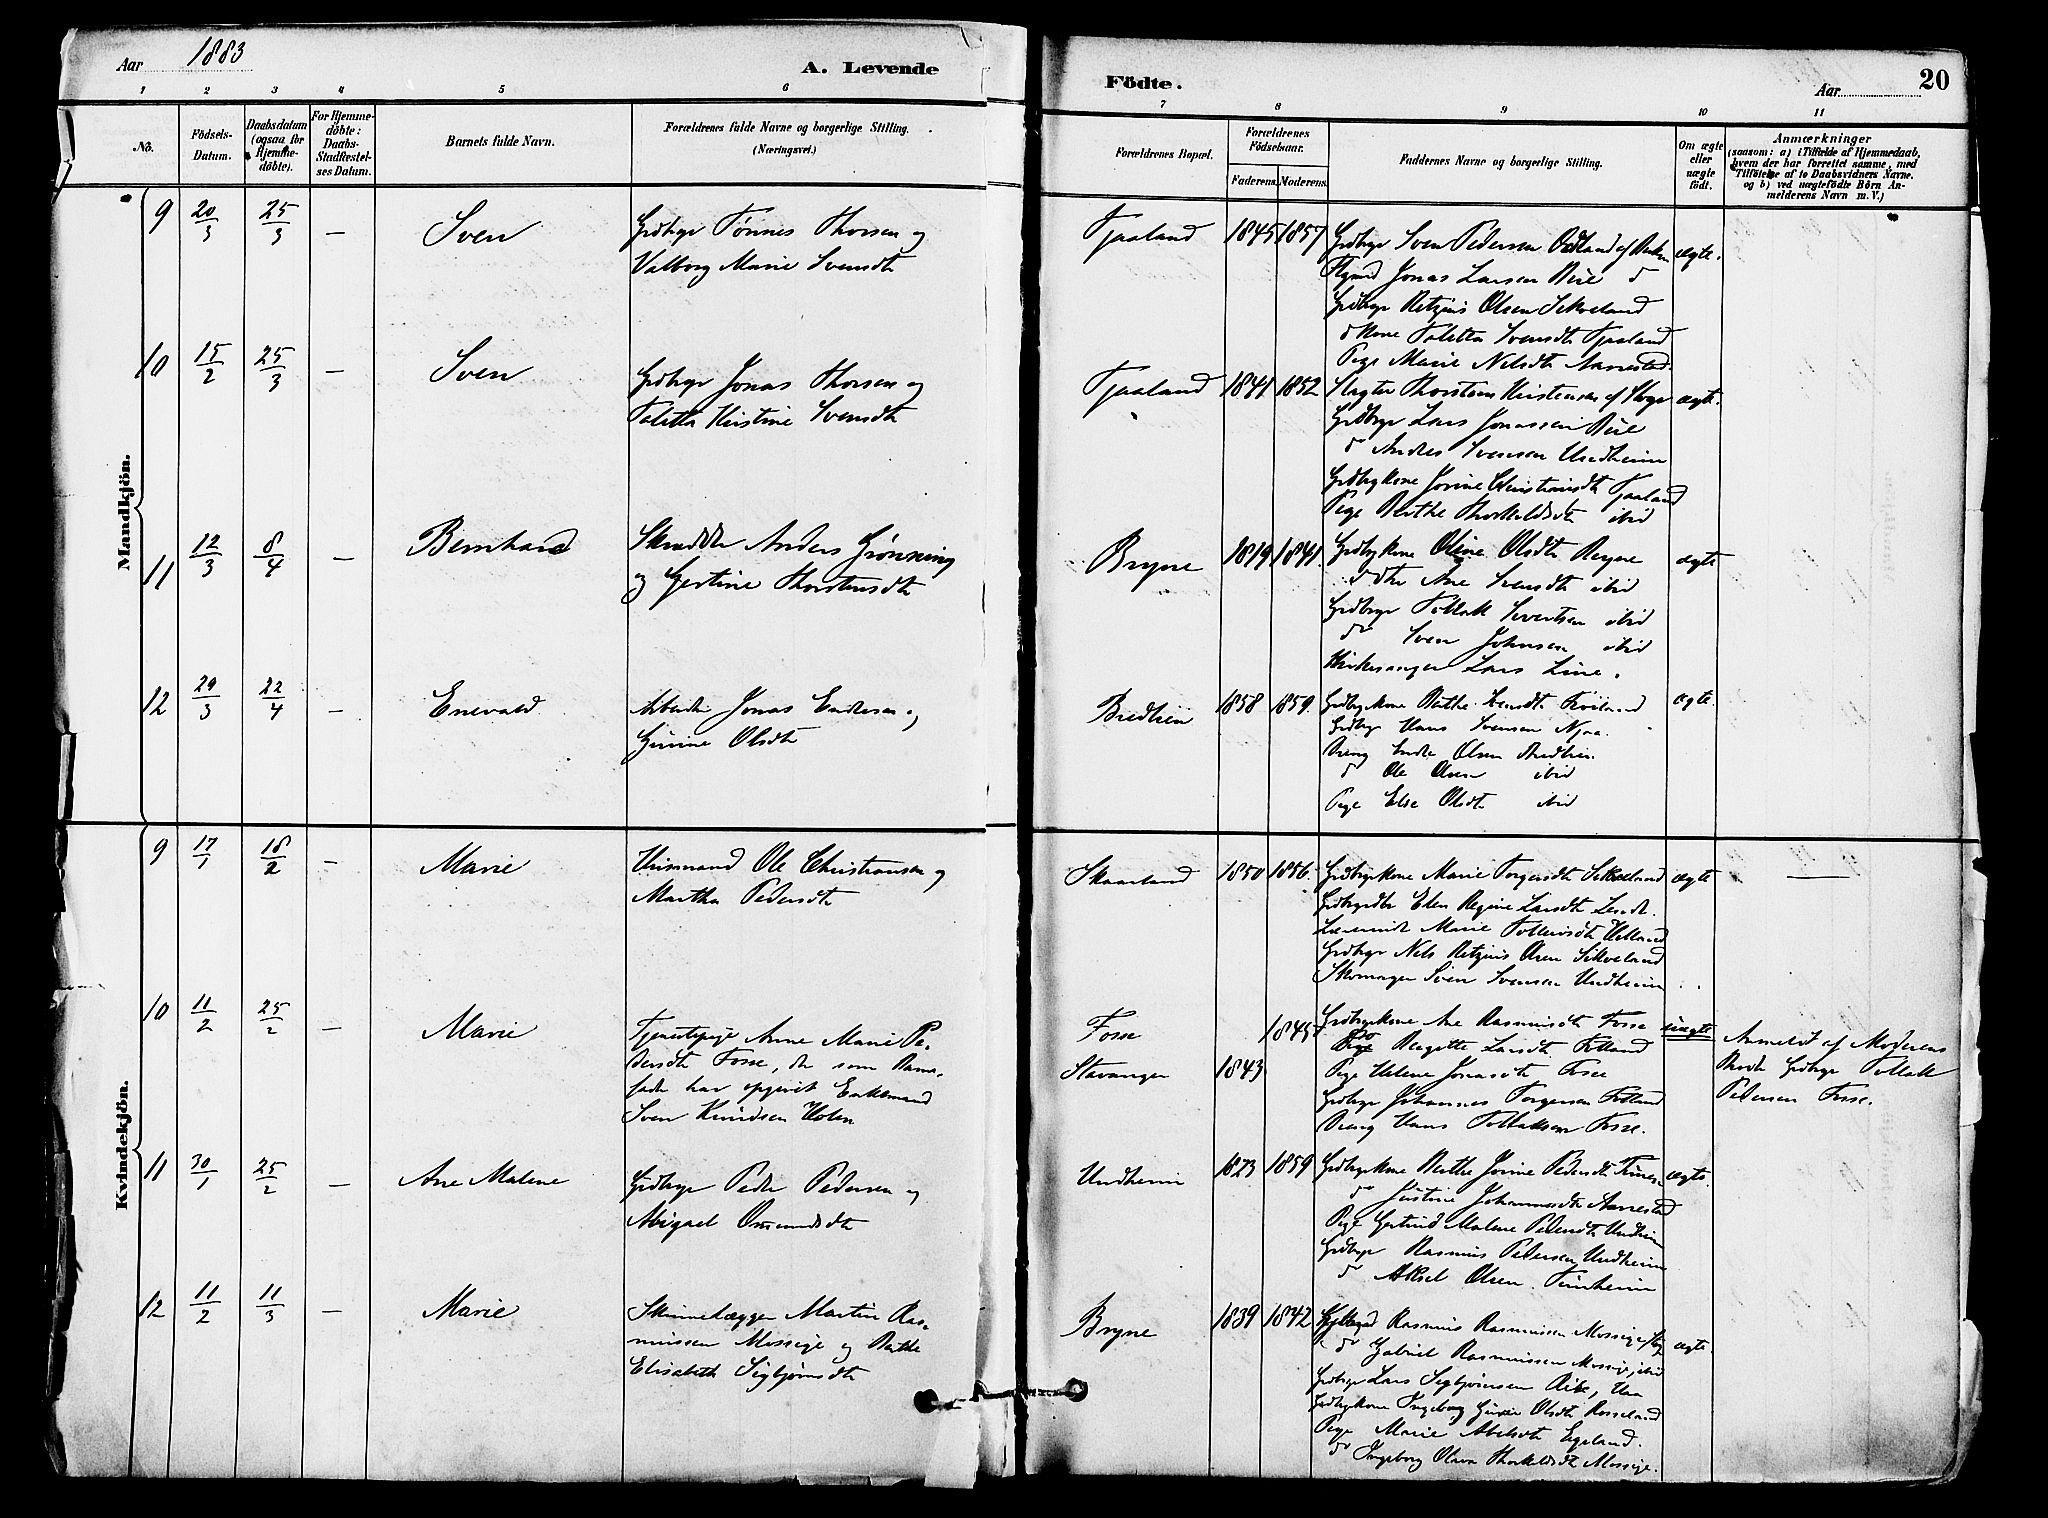 Aar 1883
A. Levende
Födte.
Aar
20
1
2
3
4
5
6
7
8
9
10
11
No.
Födsels-
Datum.
Daabsdatum
(ogsaa for
Hjemme-
döbte).
For Hjemme-
döbte:
Daabs-
Stadfæstel-
ses Datum.
Barnets fulde Navn.
Forældrenes fulde Navne og borgerlige Stilling.
(Næringsvei.)
Forældrenes Bopæl.
Forældrenes
Födselsaar.
Faderens.
Moderens.
Faddernes Navne og borgerlige Stilling.
Om ægte
eller
uægte
födt.
Anmærkninger
(saasom: a) i Tilfælde af Hjemmedaab,
hvem der har forrettet samme, med
Tilföielse af to Daabsvidners Navne.
og b) ved uægtefödte Börn An-
melderens Navn m. V.)
Mandkjön.
9 20/3 25/3 — Sven
Grdbrgr Tønnes Thorsen og
Valborg Marie Svensdt
Tjaaland 1845 1857
Grdbrgr Sven Pedersen Odland af
Jonas Larsen
Grdbrgr Retzius Olsen Sikveland
Kone Toletta Svensdt Tjaaland
Pige Marie Nilsdt Aarrestad
ægte.
10 15/2 25/3 — Sven
Grdbrgr Jonas Thorsen og
Toletta Kirstine Svensdt
Tjaaland 1841 1852
Slagter Thorstein Kirstensen af
Grdbrgr Lars Jonassen
do Andres Svensen Undheim
Grdbrgkone Jorine Christiansdt Tjaaland
Pige Berthe Thorkildsdt ibid
ægte.
11 12/3 8/4 — Bernhard
Skrædder Anders Grønning
og Gjertine Thorstensdt
Bryne 1819 1841.
Grdbrgkone Oline Olsdt Bryne
do Ane Svensdt ibid
Grdbrgr Tollak Sivertsen ibid
do Sven Johnsen ibid
Kirkesanger Lars Line.
ægte
12 29/3 22/4 — Enevald
Arbeider Jonas Endresen og
Gurine Olsdt
Bredlien 1858 1859.
Grdbrgkone Berthe Svensdt Tviland
Grdbrgr Hans Svensen Njaa.
Dreng Endre Olsen Bredlien.
do Ole Olsen ibid
Pige Else Olsdt ibid
ægte.
Kvindekjön.
9 17/1 18/2 — Marie
Husmand Ole Christiansen og
Martha Pedersdt
Skaarland 1850 1856.
Grdbrgkone Marie Torgersdt Sikveland
Ellen Regine Larsdt
Marie Tollevsdt Helland
Grdbrgr Nils Retzius Olsen Sikveland
Skomager Sven Svensen Undheim
ægte
—
10 11/2 25/2 — Marie
Tjenestepige Anne Marie Pe-
dersdt Fosse, der som Barne-
fader har opgivet Enkemand
Sven Knudsen Holen
Fosse 1845
Stavanger 1843
Grdbrgkone Ane Rasmusdt Fosse
do Bergitte Larsdt Fotland
Pige Helene Jonasdt Fosse
Grdbrgr Johannes Torgersen Fotland
Dreng Hans Tollaksen Fosse.
uægte
Anmeldt af Moderens
Broder Grdbrgr Tollak
Pedersen Fosse.
11 30/1 25/2 — Ane Malene
Grdbrgr Peder Pedersen og
Abigael Osmundsdt
Undheim 1823 1859
Grdbrgkone Berthe Jorine Pedersdt
do Justine Johannesdt Aarrestad
Pige Gertrud Malene Pedersdt Undheim
Grdbrgr Rasmus Pedersen Undheim
do Aksel Olsen. Tunheim
ægte.
12 11/2 11/3 — Marie
Skinnelægger Martin Ras-
mussen Mossige og Berthe
Elisabeth Sigbjørnsdt
Bryne 1839 1842
Rasmus Rasmussen Mossige
do Gabriel Rasmussen Mossige, ibid
Grdbrgr Lars Sigbjørnsen
Grdbrgkone Ingeborg Gurie Olsdt Rosseland
Pige Marie Abelsdt Egeland.
do Ingeborg Olava Thorkildsdt Mossige.
ægte.